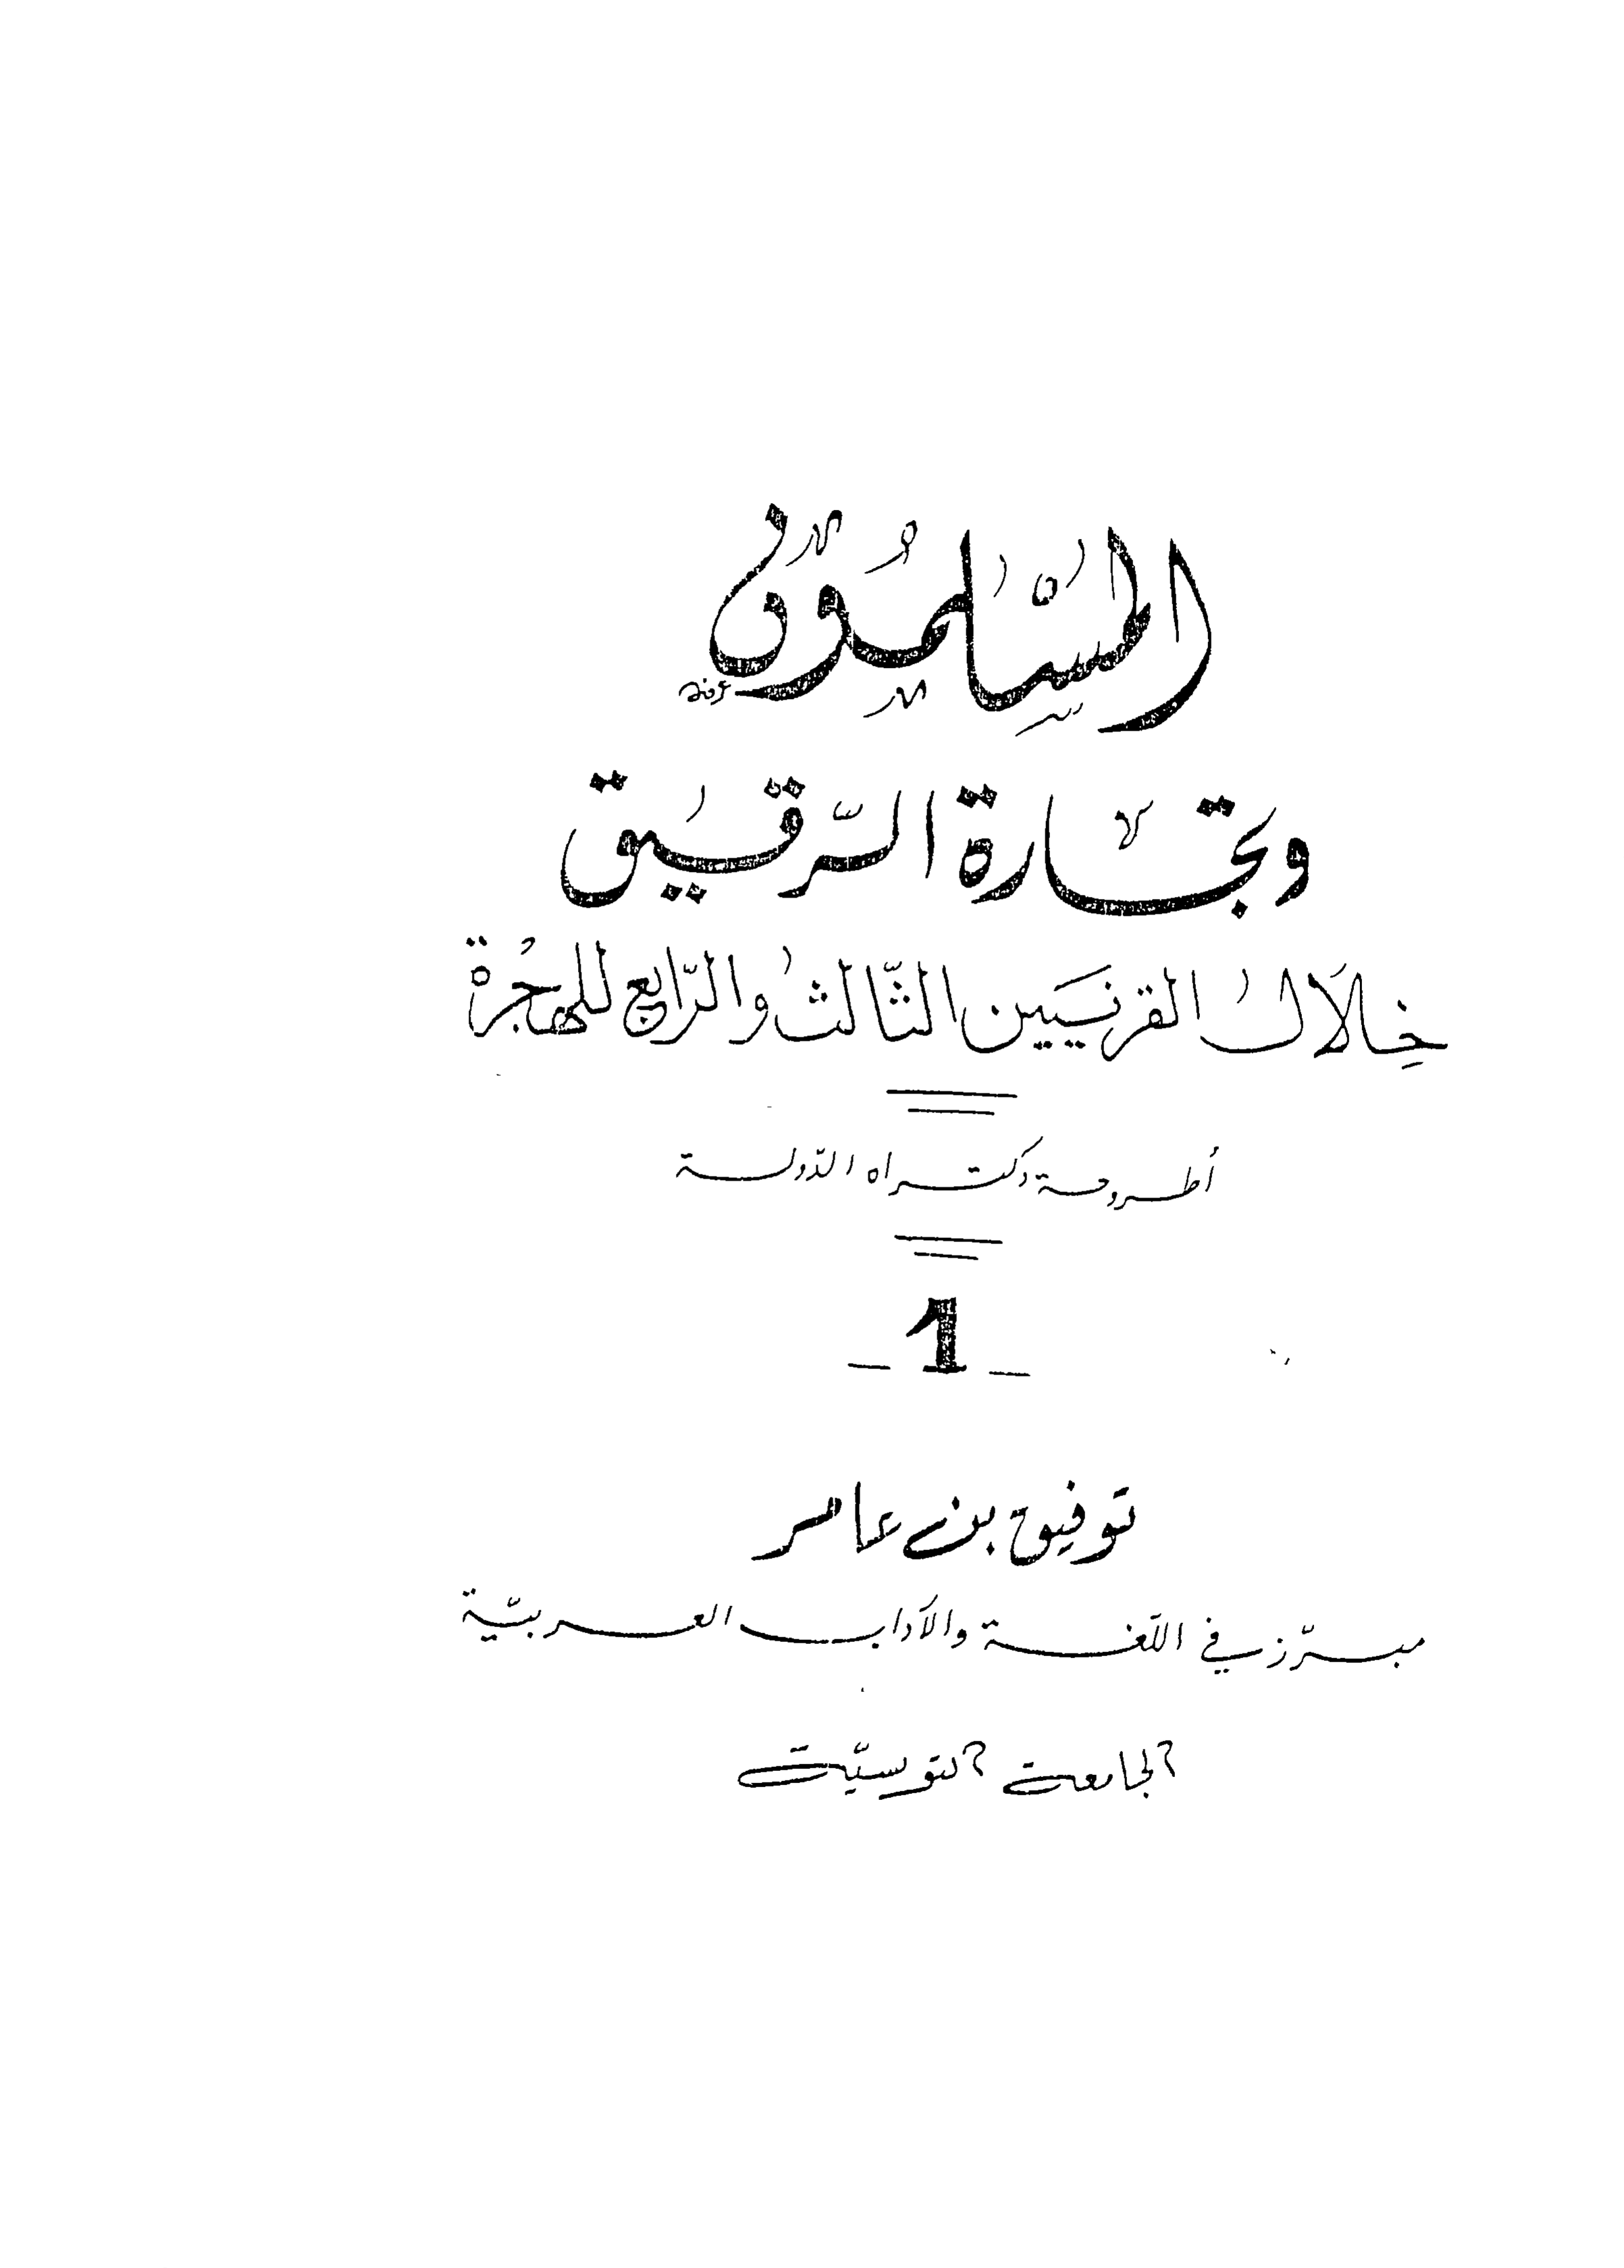 المسْلِمُونَ
وتجَارة الرّقيَق
خِلاَل القرنَيين الثّالث والرّابع للهجُرة
أطروحة دكتراه الدّولة
_ 1 _
توفيق بن عامر
مبرّز في اللّغة والآداب العربيّة
الجامعة التونسيّة